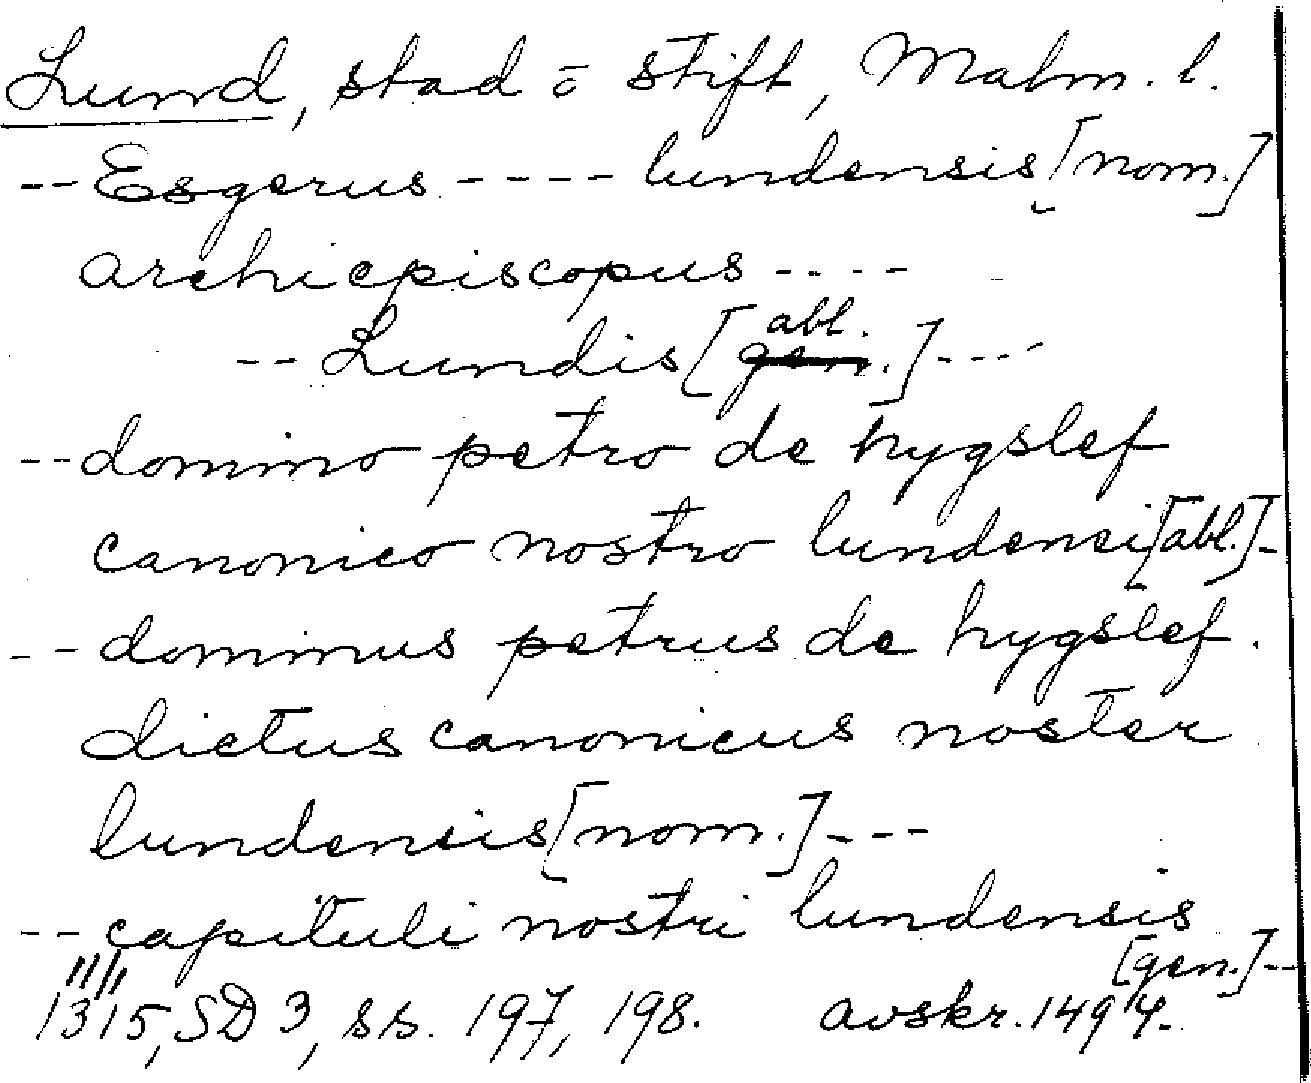 Lund, stad ō stift, Malm. l.
-- Esgerus ---- lundensis [nom.]
archiepiscopus ----
-- Lundis [gen. abl.] ----
-- domino petro de hygslef
canonico nostro lundensi [abl.] -
-- dominus petrus de hygslef.
dictus canonicus noster
lundensis [nom.] ---
-- capituli nostri lundensis
[gen.] --
1315, SD 3, ss. 197, 198. avskr. 1494.